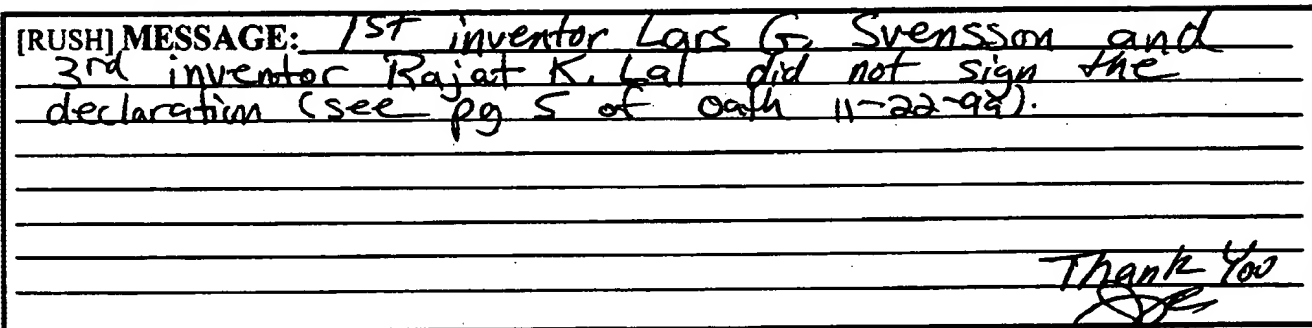 [RUSH] MESSAGE: 1st inventor Lars G. Svensson and
3rd inventor Rajat K. Lal did not sign the
declaration (see pg 5 of oath 11-22-99).
Thank You